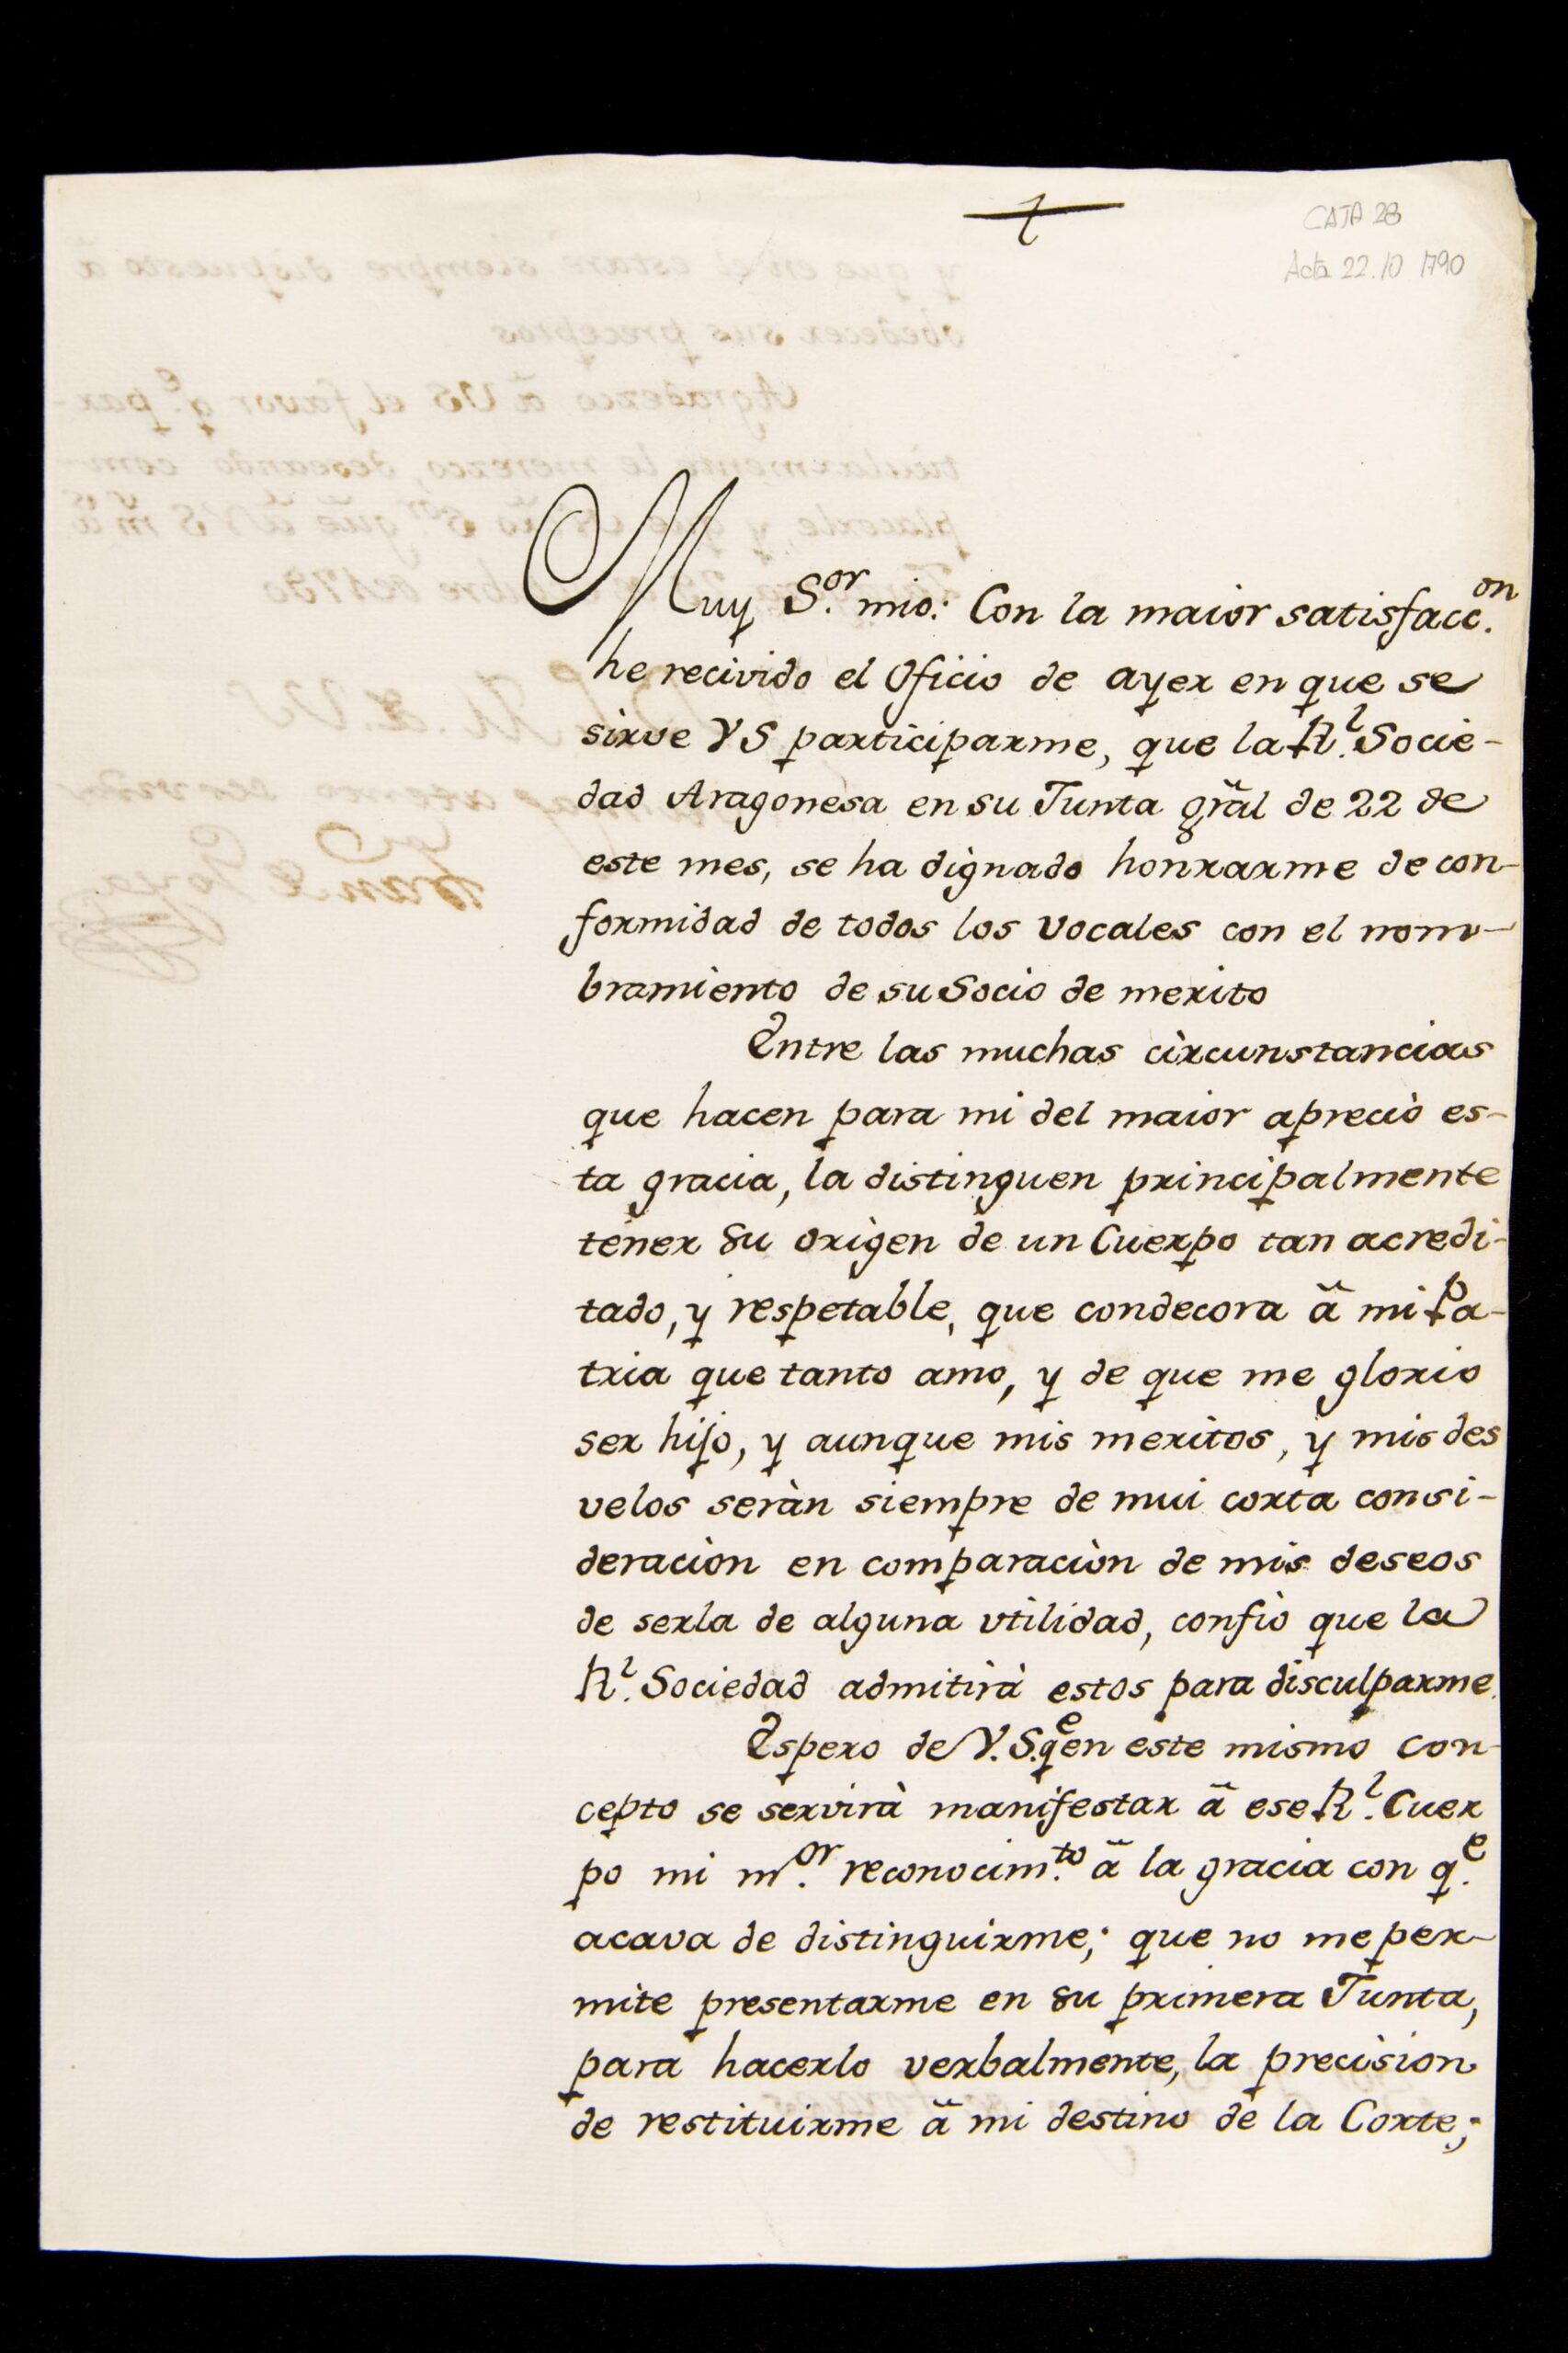 CAJA 28
Acta 22.10 1790
Muy S.or mio: Con la maior satisfacc.on
he recivido el Oficio de ayer en que se
sirve VS participarme, que la R.l Socie-
dad Aragonesa en su Junta gr̃al de 22 de
este mes, se ha dignado honrarme de con-
formidad de todos los vocales con el nom-
bramiento de su Socio de merito
Entre las muchas circunstancias
que hacen para mi del maior aprecio es-
ta gracia, la distinguen principalmente
tener su origen de un Cuerpo tan acredi-
tado, y respetable, que condecora ã mi Pa-
tria que tanto amo, y de que me glorio
ser hijo, y aunque mis meritos, y mis des
velos seràn siempre de mui corta consi-
deracion en comparaciòn de mis deseos
de serla de alguna vtilidad, confio que la
R.l Sociedad admitirà estos para disculparme.
Espero de V.S. q.e en este mismo con-
cepto se servirà manifestar ã ese R.l Cuer
po mi m.or reconocim.to ã la gracia con q.e
acava de distinguirme; que no me per-
mite presentarme en su primera Junta,
para hacerlo verbalmente, la precision
de restituirme ã mi destino de la Corte;